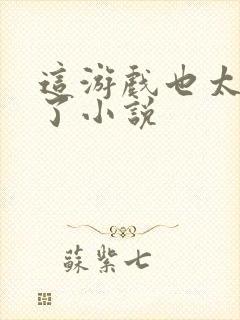 這游戲也太
了小說
蘇紫七